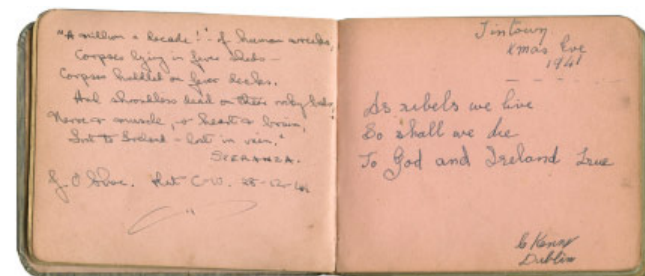 "A million a decade!" - of human wrecks,
Corpses lying in fever sheds -
Corpses huddled on fever decks.
And shroudless dead on their rocky beds,
Nerve & muscle, & heart & brain,
Lost to Ireland - lost in vain."
SPERANZA.
Hut 28-12-
Tintown
Xmas Eve
1941
As rebels we live
So shall we die
To God and Ireland True
Kenny
Dublin